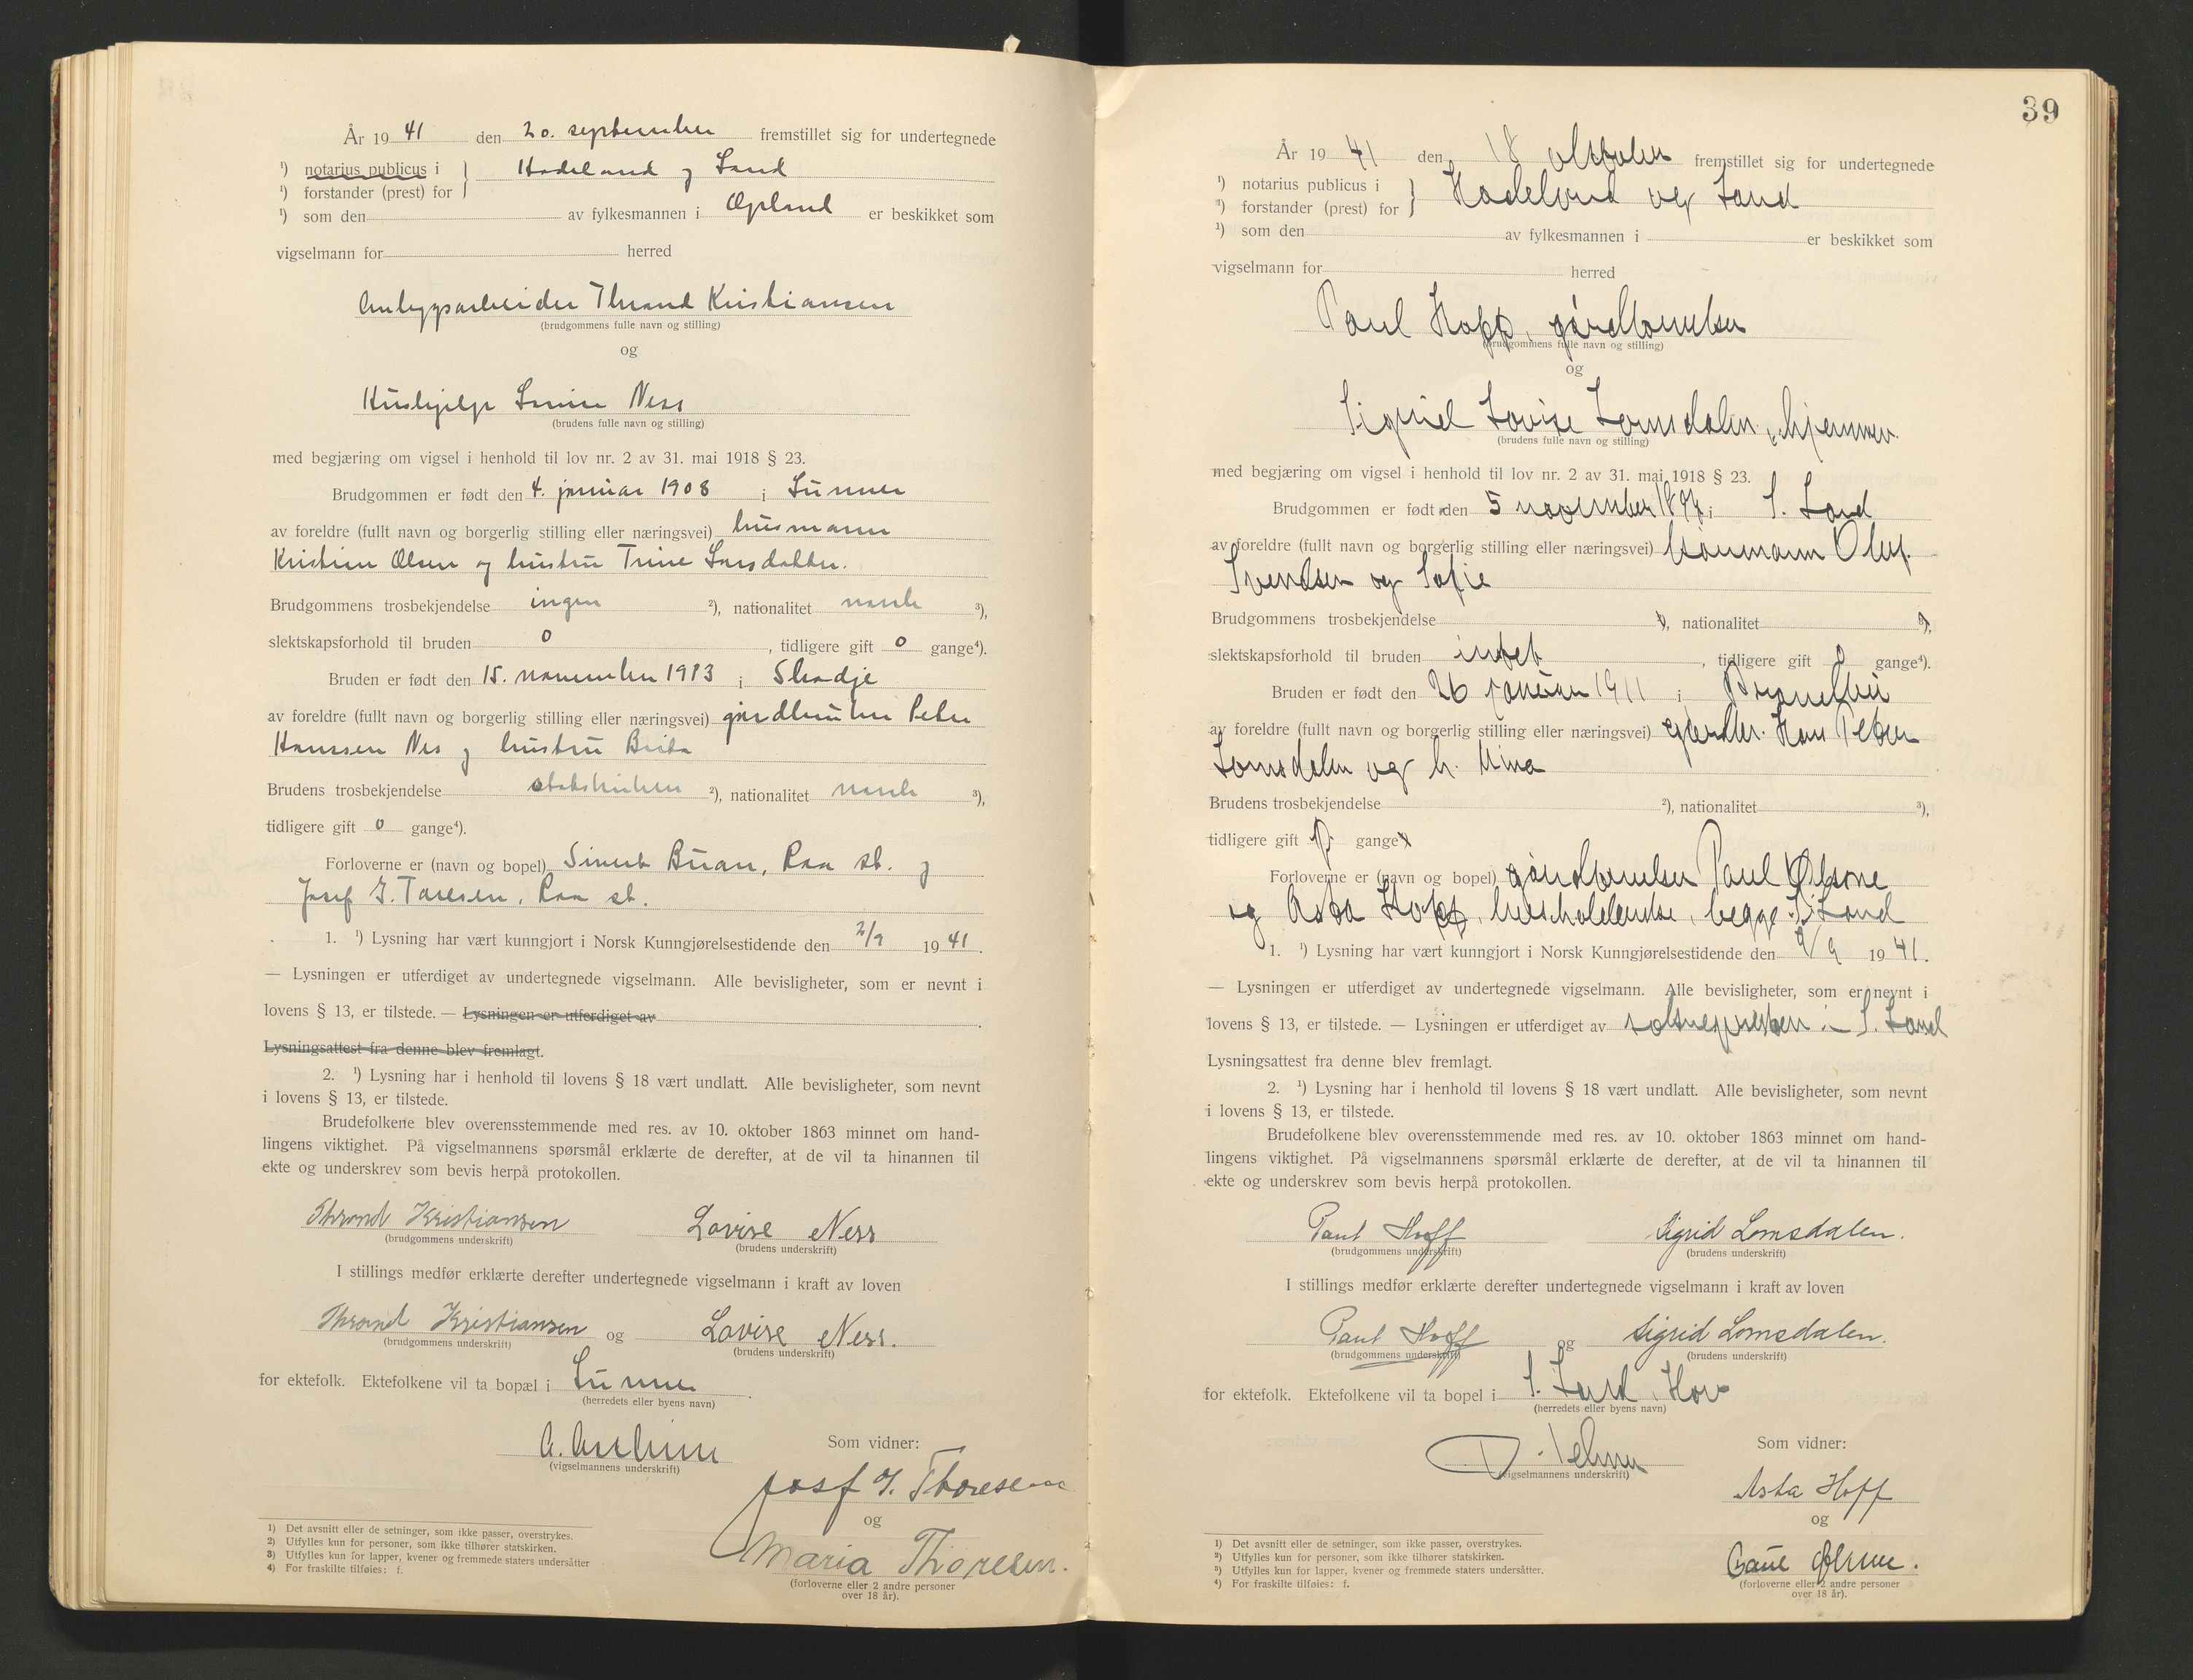 År 19 41 den 20. september fremstillet sig for undertegnede
¹) notarius publicus i } Hadeland og Land
¹) forstander (prest) for
¹) som den av fylkesmannen i Opland er beskikket som
vigselmann for herred
Anleggsarbeider Thrand Kristiansen
(brudgommens fulle navn og stilling)
og
Hushjelp Lovise Ness
(brudens fulle navn og stilling)
med begjæring om vigsel i henhold til lov nr. 2 av 31. mai 1918 § 23.
Brudgommen er født den 4. januar 1908 i Lunner
av foreldre (fullt navn og borgerlig stilling eller næringsvei) husmann
Kristian Olsen og hustru Trine Larsdatter.
Brudgommens trosbekjendelse ingen ²), nationalitet norsk ³),
slektskapsforhold til bruden 0 , tidligere gift 0 gange⁴).
Bruden er født den 15. november 1913 i Skodje
av foreldre (fullt navn og borgerlig stilling eller næringsvei) gårdbruker Peter
Hanssen Nes og hustru Brita
Brudens trosbekjendelse statskirken ²), nationalitet norsk ³),
tidligere gift 0 gange⁴).
Forloverne er (navn og bopel) Sivert Buan, Roa st. og
Josef G. Toresen, Roa st.
1. ¹) Lysning har vært kunngjort i Norsk Kunngjørelsestidende den 2/9 19 41.
— Lysningen er utferdiget av undertegnede vigselmann. Alle bevisligheter, som er nevnt i
lovens § 13, er tilstede. — Lysningen er utferdiget av
Lysningsattest fra denne blev fremlagt.
2. ¹) Lysning har i henhold til lovens § 18 vært undlatt. Alle bevisligheter, som nevnt
i lovens § 13, er tilstede.
Brudefolkene blev overensstemmende med res. av 10. oktober 1863 minnet om hand-
lingens viktighet. På vigselmannens spørsmål erklærte de derefter, at de vil ta hinannen til
ekte og underskrev som bevis herpå protokollen.
Thrond Kristiansen Lovise Ness
(brudgommens underskrift) (brudens underskrift)
I stillings medfør erklærte derefter undertegnede vigselmann i kraft av loven
Thrond Kristiansen og Lovise Ness.
(brudgommens underskrift) (brudens underskrift)
for ektefolk. Ektefolkene vil ta bopæl i Lunner.
(herredets eller byens navn)
(vigselmannens underskrift)
Som vidner:
Josf G. Thoresen
og
Maria Thoresen.
(forloverne eller 2 andre personer
over 18 år).
1) Det avsnitt eller de setninger, som ikke passer, overstrykes.
2) Utfylles kun for personer, som ikke tilhører statskirken.
3) Utfylles kun for lapper, kvener og fremmede staters undersåtter
4) For fraskilte tilføies: f.
39
År 19 41 den 18 oktober fremstillet sig for undertegnede
¹) notarius publicus i } Hadeland og Land
¹) forstander (prest) for
¹) som den av fylkesmannen i er beskikket som
vigselmann for herred
Paul Hoff, gårdbruker
(brudgommens fulle navn og stilling)
og
Sigrid Lovise Lomsdalen, hjemmev.
(brudens fulle navn og stilling)
med begjæring om vigsel i henhold til lov nr. 2 av 31. mai 1918 § 23.
Brudgommen er født den 5 november i S. Land
av foreldre (fullt navn og borgerlig stilling eller næringsvei) Oluf
Svendsen og Sofie
Brudgommens trosbekjendelse ²), nationalitet ³),
slektskapsforhold til bruden intet , tidligere gift 0 gange⁴).
Bruden er født den 26 januar 1911 i Brandbu
av foreldre (fullt navn og borgerlig stilling eller næringsvei) gårdbr. Hans Peter
Lomsdalen og h. Mina
Brudens trosbekjendelse ²), nationalitet ³),
tidligere gift 0 gange
Forloverne er (navn og bopel) gårdbruker Paul
og Asta Hoff, husholderske, begge S. Land
1. ¹) Lysning har vært kunngjort i Norsk Kunngjørelsestidende den 9/9 19 41.
— Lysningen er utferdiget av undertegnede vigselmann. Alle bevisligheter, som er nevnt i
lovens § 13, er tilstede. — Lysningen er utferdiget av soknepresten i S. Land
Lysningsattest fra denne blev fremlagt.
2. ¹) Lysning har i henhold til lovens § 18 vært undlatt. Alle bevisligheter, som nevnt
i lovens § 13, er tilstede.
Brudefolkene blev overensstemmende med res. av 10. oktober 1863 minnet om hand-
lingens viktighet. På vigselmannens spørsmål erklærte de derefter, at de vil ta hinannen til
ekte og underskrev som bevis herpå protokollen.
Paul Hoff Sigrid Lomsdalen.
(brudgommens underskrift) (brudens underskrift)
I stillings medfør erklærte derefter undertegnede vigselmann i kraft av loven
Paul Hoff og Sigrid Lomsdalen.
(brudgommens underskrift) (brudens underskrift)
for ektefolk. Ektefolkene vil ta bopel i S. Land, Hov
(herredets eller byens navn)
(vigselmannens underskrift)
Som vidner:
Asta Hoff
og
(forloverne eller 2 andre personer
over 18 år).
1) Det avsnitt eller de setninger, som ikke passer, overstrykes.
²) Utfylles kun for personer, som ikke tilhører statskirken.
³) Utfylles kun for lapper, kvener og fremmede staters undersåtter.
⁴) For fraskilte tilføies: f.